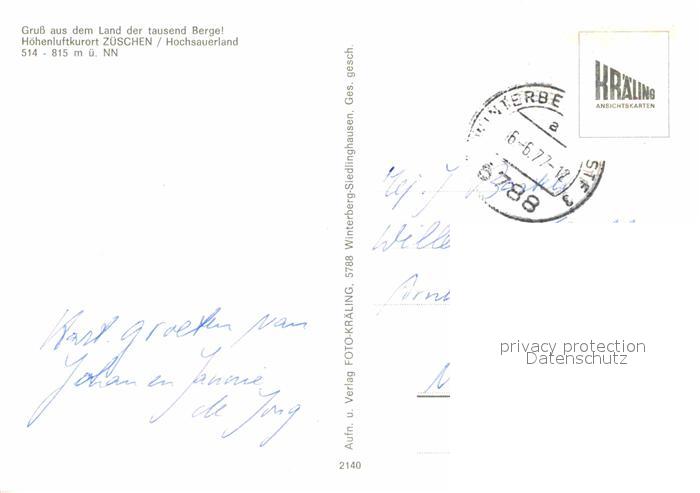 Gruß aus dem Land der tausend Berge!
Höhenluftkurort ZÜSCHEN / Hochsauerland
514 - 815 m ü. NN
Hart. groeten van
Johan en Jannie
de Jong
Aufn. u. Verlag FOTO-KRÄLING, 5788 Winterberg-Siedlinghausen. Ges. gesch.
2140
KRÄLING
ANSICHTSKARTEN
WINTERBE
a
6-6.77-12
STF 3
5788
Wille
privacy protection
Datenschutz